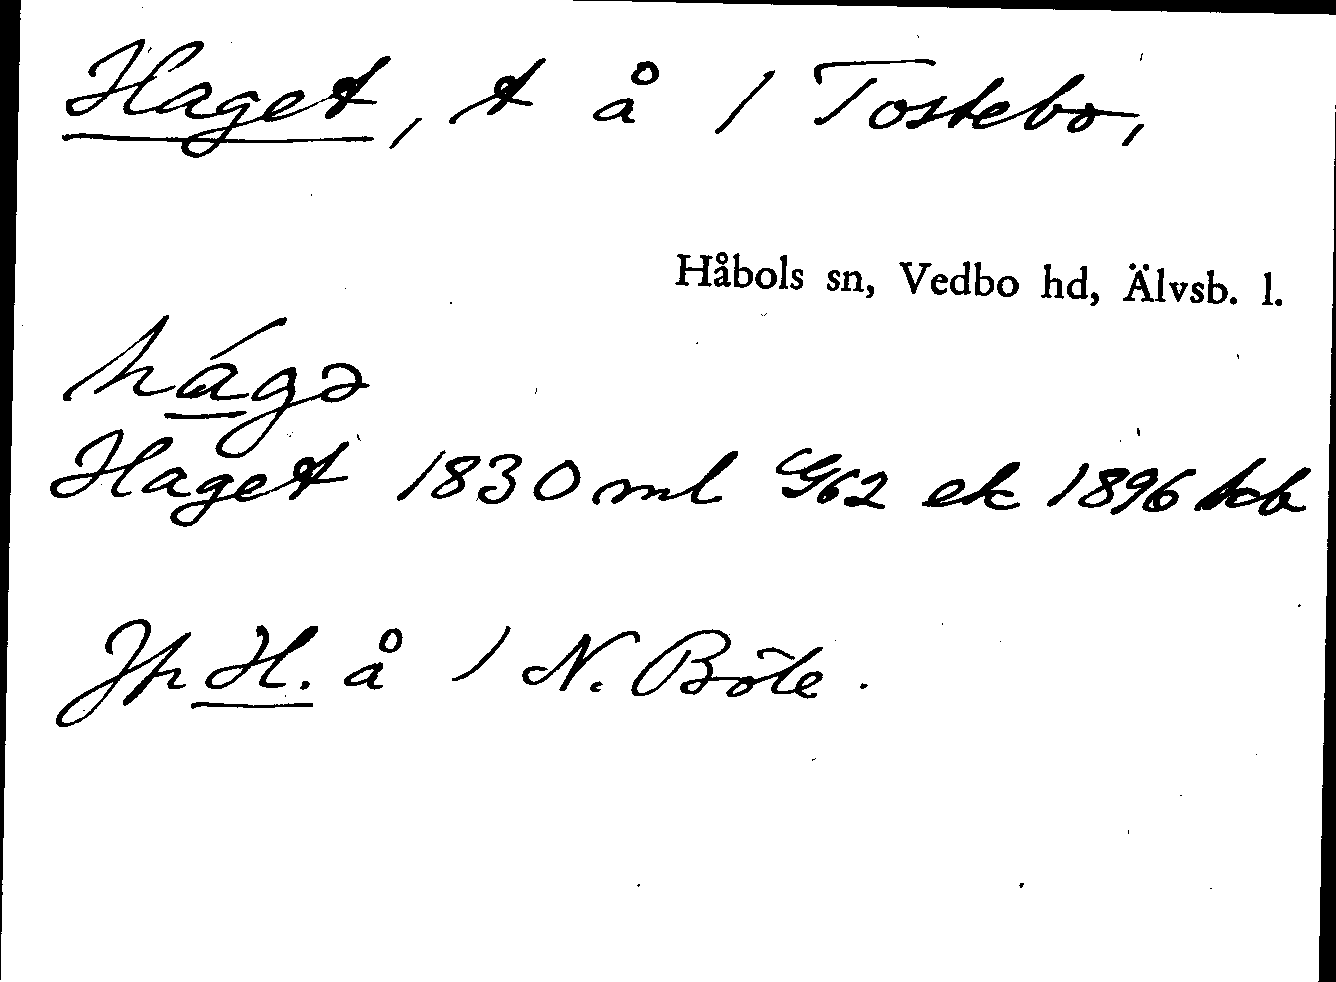 Haget, t å 1 Tostebo,
Håbols sn, Vedbo hd, Älvsb. l.
hágə
Haget 1830 ml G62 ek 1896 hb
Jfr H. å 1 N. Böle.